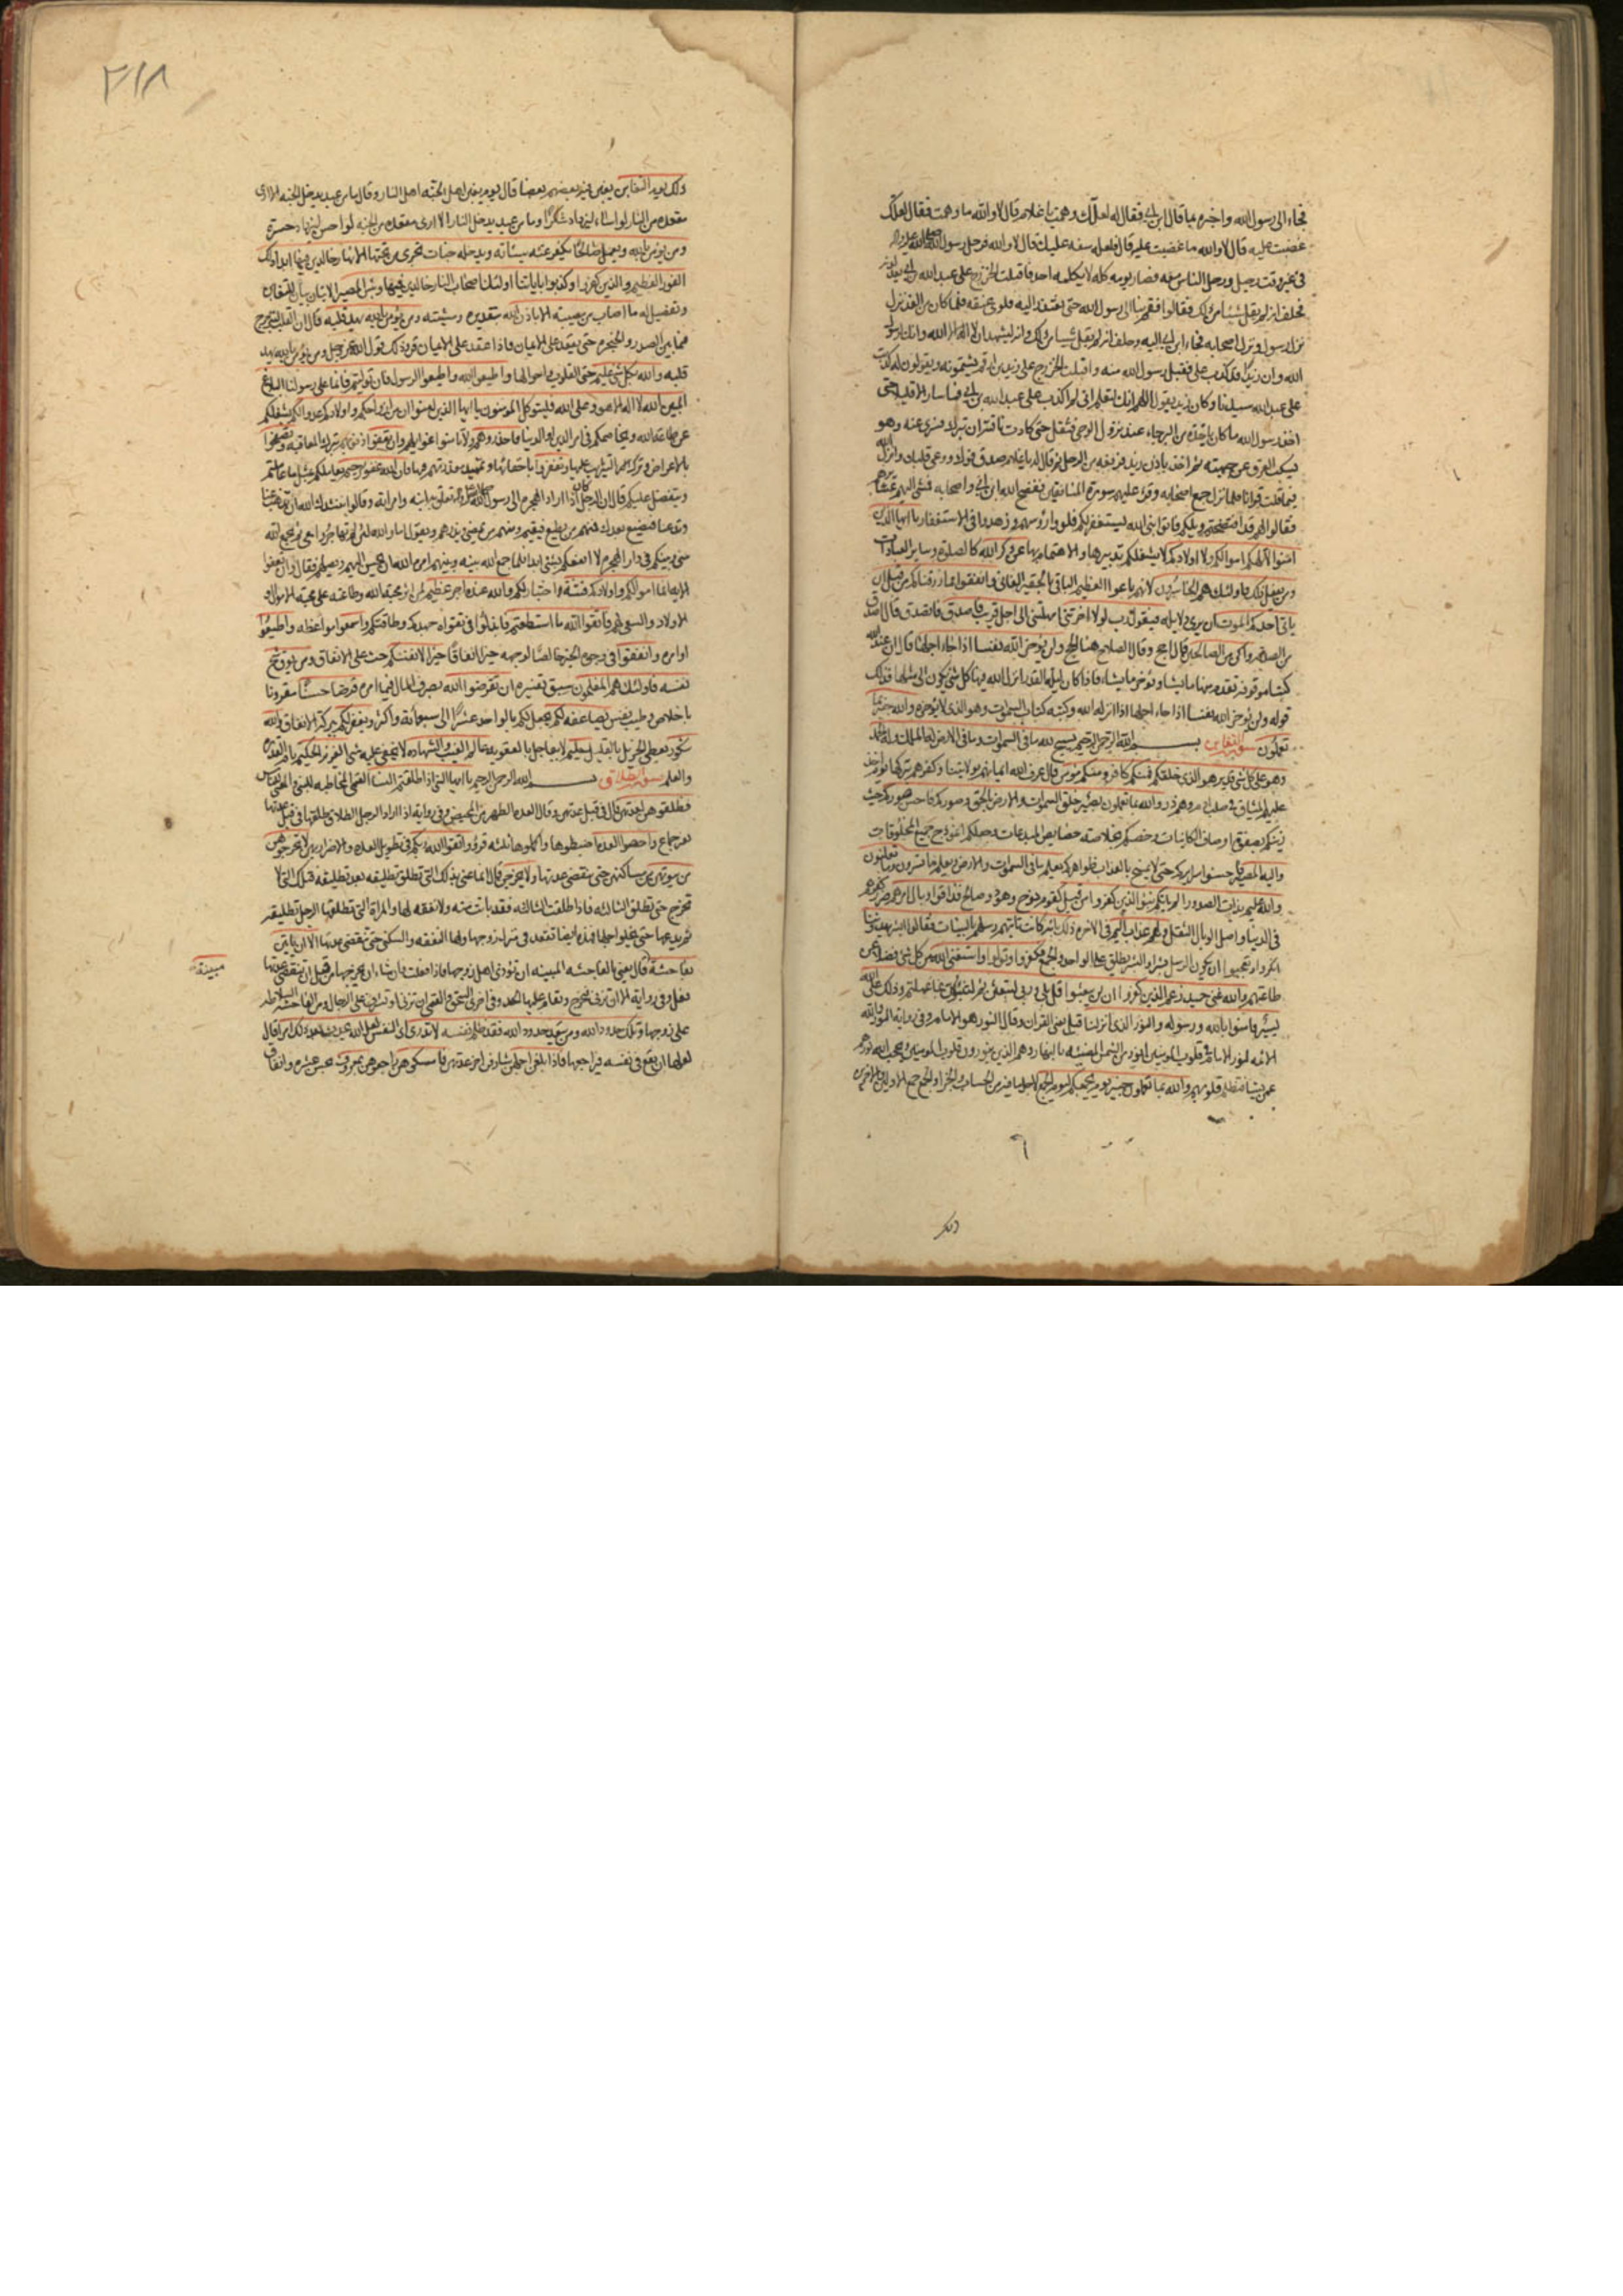 فجاء الى رسول الله واخبره بما قال ابن ابي فقال له لعلك وهمت يا غلام قال لا والله ما وهمت فقال لعلك
غضبت عليه قال لا والله ما غضبت عليه قال فلعله سفه عليك قال لا والله فرحل رسول الله صلى الله عليه واله
في غير وقت رحيل ورحل الناس معه فصار يومه كله لا يكلمه احد فاقبلت الخزرج على عبد الله بن ابي يعذلونه
فحلف انه لم يقل شيئا من ذلك فقالوا فقم بنا الى رسول الله حتى نعتذر اليه فلوى عنقه فلما كان من الغد نزل
نزل رسول ونزل اصحابه فجاء ابن ابي اليه وحلف انه لم يقل شيئا من ذلك وانه ليشهد ان لا اله الا الله وانك لرسول
الله وان زيدا قد كذب علي فقبل رسول الله منه واقبلت الخزرج على زيد بن ارقم يشتمونه ويقولون له كذبت
على عبد الله سيدنا وكان زيد يقول اللهم انك لتعلم اني لم اكذب على عبد الله بن ابي فما سار الا قليلا حتى
اخذ رسول الله ما كان ياخذه من البرحاء عند نزول الوحي فثقل حتى كادت ناقته ان تبرك فسري عنه وهو
يسكب العرق عن جبهته ثم اخذ باذن زيد فرفعه من الرحل ثم قال له يا غلام صدق فوك ووعى قلبك وانزل الله
فيما قلت قرانا فلما نزل جمع اصحابه وقرء عليهم سورة المنافقين ففضح الله ابن ابي واصحابه فمشى اليهم عشائرهم
فقالوا لهم قد افتضحتم ويلكم فاتوا نبي الله يستغفر لكم فلووا رؤسهم وزهدوا في الاستغفار يا ايها الذين
امنوا لا تلهكم اموالكم ولا اولادكم لا يشغلكم تدبيرها والاهتمام بها عن ذكر الله كالصلوة وساير العبادات
ومن يفعل ذلك فاولئك هم الخاسرون لانهم باعوا العظيم الباقي بالحقير الفاني وانفقوا مما رزقناكم من قبل ان
ياتي احدكم الموت ان يرى دلايله فيقول رب لولا اخرتني امهلتني الى اجل قريب فاصدق فاتصدق قال اصدق
من الصدقة واكن من الصالحين قال احج وقال الصلاح هنا الحج ولن يؤخر الله نفسا اذا جاء اجلها قال ان عند الله
كتبا موقوفة يقدم منها ما يشاء ويؤخر ما يشاء فاذا كان ليلة القدر انزل الله فيها كل شئ يكون الى مثلها فذلك
قوله ولن يؤخر الله نفسا اذا جاء اجلها اذا انزله الله وكتبه كتاب السموات وهو الذي لا يؤخره والله خبير بما
تعملون سورة التغابن بسم الله الرحمن الرحيم يسبح لله ما في السموات وما في الارض له الملك وله الحمد
وهو على كل شئ قدير هو الذي خلقكم فمنكم كافر ومنكم مؤمن قال عرف الله ايمانهم بولايتنا وكفرهم بتركها يوم اخذ
عليهم الميثاق في صلب ادم وهم ذر والله بما تعملون بصير خلق السموات والارض بالحق وصوركم فاحسن صوركم حيث
زينكم بصفوة اوصاف الكاينات وخصكم بخلاصة خصايص المبدعات وجعلكم انموذج جميع المخلوقات
واليه المصير فاحسنوا سرايركم حتى لا يمسخ بالعذاب ظواهركم يعلم ما في السموات والارض ويعلم ما تسرون وما تعلنون
والله عليم بذات الصدور الم ياتكم نبؤ الذين كفروا من قبل كقوم نوح وهود وصالح فذاقوا وبال امرهم ضرر كفرهم
في الدنيا واصل الوبال الثقل ولهم عذاب اليم في الاخرة ذلك بانه كانت تاتيهم رسلهم بالبينات فقالوا ابشر يهدوننا
انكروا وتعجبوا ان يكون الرسل بشرا والبشر يطلق على الواحد والجمع فكفروا وتولوا واستغنى الله عن كل شئ فضلا عن
طاعتهم والله غني حميد زعم الذين كفروا ان لن يبعثوا قل بلى وربي لتبعثن ثم لتنبؤن بما عملتم وذلك على الله
يسير فامنوا بالله ورسوله والنور الذي انزلنا قيل يعني القران وقال النور هو الامام وفي رواية النور والله
الائمة لنور الامام في قلوب المؤمنين انور من الشمس المضيئة بالنهار وهم الذين ينورون قلوب المؤمنين ويحجب الله نورهم
عمن يشاء فتظلم قلوبهم والله بما تعملون خبير يوم يجمعكم ليوم الجمع لاجل ما فيه من الحساب والجزاء والجمع جمع الاولين والاخرين
ذلك
٣١٨
ذلك يوم التغابن يغبن فيه بعضهم بعضا قال يوم يغبن اهل الجنة اهل النار وقال ما من عبد يدخل الجنة الا ارى
مقعده من النار لو اساء ليزداد شكرا وما من عبد يدخل النار الا ارى مقعده من الجنة لو احسن ليزداد حسرة
ومن يؤمن بالله ويعمل صالحا يكفر عنه سيئاته ويدخله جنات تجري من تحتها الانهار خالدين فيها ابدا ذلك
الفوز العظيم والذين كفروا وكذبوا باياتنا اولئك اصحاب النار خالدين فيها وبئس المصير الايتان بيان للتغابن
وتفصيل له ما اصاب من مصيبة الا باذن الله بتقديره ومشيته ومن يؤمن بالله يهد قلبه قال ان القلب ليترجج
فيما بين الصدر والحنجرة حتى يعقد على الايمان فاذا عقد على الايمان قر وذلك قول الله عز وجل ومن يؤمن بالله يهد
قلبه والله بكل شئ عليم حتى القلوب واحوالها واطيعوا الله واطيعوا الرسول فان توليتم فانما على رسولنا البلاغ
المبين الله لا اله الا هو وعلى الله فليتوكل المؤمنون يا ايها الذين امنوا ان من ازواجكم واولادكم عدوا لكم يشغلكم
عن طاعة الله ويخاصمكم في امر الدين او الدنيا فاحذروهم ولا تامنوا غوايلهم وان تعفوا عن ذنوبهم بترك المعاقبة وتصفحوا
بالاعراض وترك التثريب عليها وتغفروا باخفائها وتمهيد معذرتهم فيها فان الله غفور رحيم يعاملكم بمثل ما عاملتم
ويتفضل عليكم قال ان الرجل كان اذا اراد الهجرة الى رسول الله صلى الله عليه واله تعلق به ابنه وامراته وقالوا ننشدك الله ان تذهب عنا
وتدعنا فنضيع بعدك فمنهم من يطيع فيقيم ومنهم من يمضي ويذرهم ويقول اما والله لئن لم تهاجروا معي ثم يجمع الله
بيني وبينكم في دار الهجرة لا انفعكم بشئ ابدا فلما جمع الله بينه وبينهم امره الله ان يحسن اليهم ويصلهم فقال وان تعفوا
الاية انما اموالكم واولادكم فتنة اختبار لكم والله عنده اجر عظيم لمن اثر محبة الله وطاعته على محبة الاموال و
الاولاد والسعي لهم فاتقوا الله ما استطعتم فابذلوا في تقواه جهدكم وطاقتكم واسمعوا مواعظه واطيعوا
اوامره وانفقوا في وجوه الخير خالصا لوجهه خيرا لانفسكم انفاقا خيرا لانفسكم حث على الانفاق ومن يوق شح
نفسه فاولئك هم المفلحون سبق تفسيره ان تقرضوا الله بصرف المال فيما امره قرضا حسنا مقرونا
باخلاص وطيب نفس يضاعفه لكم يجعل لكم بالواحد عشرا الى سبعمائة واكثر ويغفر لكم ببركة الانفاق والله
شكور يعطي الجزيل بالقليل حليم لا يعاجل بالعقوبة عالم الغيب والشهادة لا يخفى عليه شئ العزيز الحكيم تام القدرة
والعلم سورة الطلاق بسم الله الرحمن الرحيم يا ايها النبي اذا طلقتم النساء
فطلقوهن لعدتهن قال في قبل عدتهن وقال العدة الطهر من المحيض وفي رواية اذا اراد الرجل الطلاق طلقها في قبل عدتها
بغير جماع واحصوا العدة اضبطوها واكملوها ثلثة قروء واتقوا الله ربكم في تطويل العدة والاضرار بهن لا تخرجوهن
من بيوتهن من مساكنهن حتى تنقضي عدتهن ولا يخرجن قال انما عنى بذلك التي تطلق تطليقة بعد تطليقة فتلك التي لا
تخرج حتى تطلق الثالثة فاذا طلقت الثالثة فقد بانت منه ولا نفقة لها والمراة التي يطلقها الرجل تطليقة
ثم يدعها حتى يخلو اجلها فهذه ايضا تقعد في منزل زوجها ولها النفقة والسكنى حتى تنقضي عدتها الا ان ياتين
بفاحشة قال يعني بالفاحشة المبينة ان تؤذي اهل زوجها فاذا فعلت فان شاء ان يخرجها من قبل ان تنقضي عدتها
مبينة
فعل وفي رواية الا ان تزني فتخرج ويقام عليها الحد وفي اخرى
على زوجها وتلك حدود الله ومن يتعد حدود الله فقد ظلم نفسه لا تدري اي النفس لعل الله يحدث بعد ذلك امرا قال
لعلها ان يقع في نفسه فيراجعها فاذا بلغن اجلهن شارفن اخر عدتهن فامسكوهن راجعوهن بمعروف بحسن عشرة وانفاق